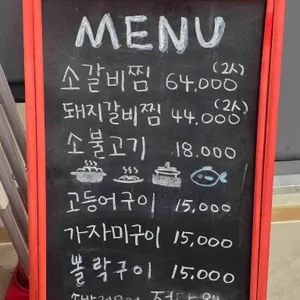 MENU
소갈비찜 64,000 (2人)
돼지갈비찜 44,000 (2人)
소불고기 18,000
고등어구이 15,000
가자미구이 15,000
뽈락구이 15,000